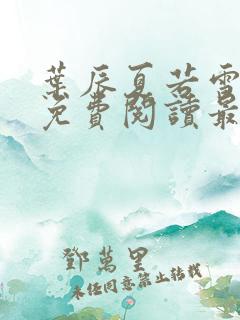 葉辰夏若雪
免費閱讀最
鄧萬里
未經同意禁止轉載